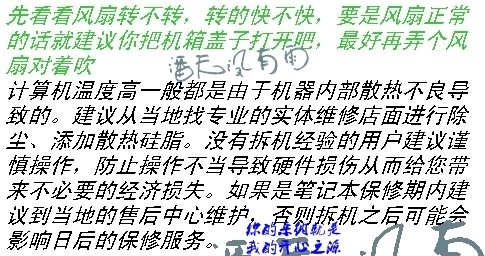 先看看风扇转不转，转的快不快，要是风扇正常
的话就建议你把机箱盖子打开吧，最好再弄个风
扇对着吹
计算机温度高一般都是由于机器内部散热不良导
致的。建议从当地找专业的实体维修店面进行除
尘、添加散热硅脂。没有拆机经验的用户建议谨
慎操作，防止操作不当导致硬件损伤从而给您带
来不必要的经济损失。如果是笔记本保修期内建
议到当地的售后中心维护，否则拆机之后可能会
影响日后的保修服务。
你的采纳就是
我的开心之源